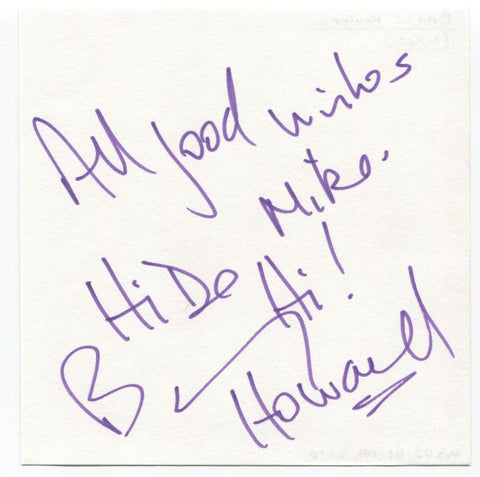 All good wishes
Mike.
Hi De
Hi!
B
Howard